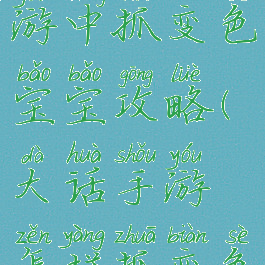 游中抓变色
bǎo bǎo gōng lüè
宝宝攻略(
dà huà shǒu yóu
大话手游
zěn yàng zhuā biàn sè
怎样抓变色